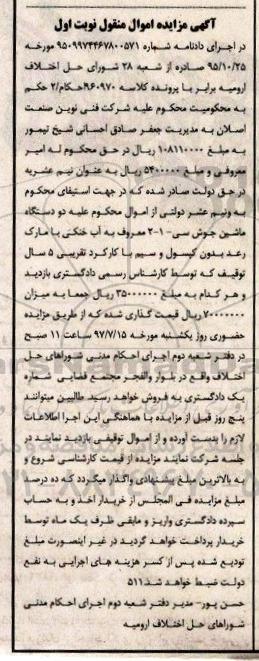 آگهی مزایده اموال منقول نوبت اول
در اجرای دادنامه شماره ۹۵۰۹۹۷۴۴۶۷۸۰۰۵۷۱ مورخه
۹۵/۱۰/۲۵ صادره از شعبه ۲۸ شورای حل اختلاف
ارومیه برابر با پرونده کلاسه ۹۶۰۹۷۰احکام/۲ حکم
به محکومیت محکوم علیه شرکت فنی نوین صنعت
اصلان به مدیریت جعفر صادق احسانی شیخ تیمور
به مبلغ ۱۰۸۱۱۰۰۰۰ ریال در حق محکوم له امیر
معروفی و مبلغ ۵۴۰۰۰۰۰ ریال به عنوان نیم عشریه
در حق دولت صادر شده که در جهت استیفای محکوم
به ونیم عشر دولتی از اموال محکوم علیه دو دستگاه
ماشین جوش سی-۱-۲ معروف به آب خنکی با مارک
رعد بدون کپسول و سیم با کارکرد تقریبی ۵ سال
توقیف که توسط کارشناس رسمی دادگستری بازدید
و هر کدام به مبلغ ۳۵۰۰۰۰۰۰ ریال جمعا به میزان
۷۰۰۰۰۰۰۰ ریال قیمت گذاری شده که از طریق مزایده
حضوری روز یکشنبه مورخه ۹۷/۷/۱۵ ساعت ۱۱ صبح
در دفتر شعبه دوم اجرای احکام مدنی شوراهای حل
اختلاف واقع در بلوار والفجر مجتمع قضایی شماره
یک دادگستری به فروش خواهد رسید طالبین میتوانند
پنج روز قبل از مزایده با هماهنگی این اجرا اطلاعات
لازم را بدست آورده و از اموال توقیفی بازدید نمایند در
جلسه شرکت نمایند مزایده از قیمت کارشناسی شروع و
به بالاترین مبلغ پیشنهادی واگذار میگردد که ده درصد
مبلغ مزایده فی المجلس از خریدار اخذ و به حساب
سپرده دادگستری واریز و مابقی ظرف یک ماه توسط
خریدار پرداخت خواهد گردید در غیر اینصورت مبلغ
تودیع شده پس از کسر هزینه های اجرایی به نفع
دولت ضبط خواهد شد ۵۱۱
حسن پور- مدیر دفتر شعبه دوم اجرای احکام مدنی
شوراهای حل اختلاف ارومیه